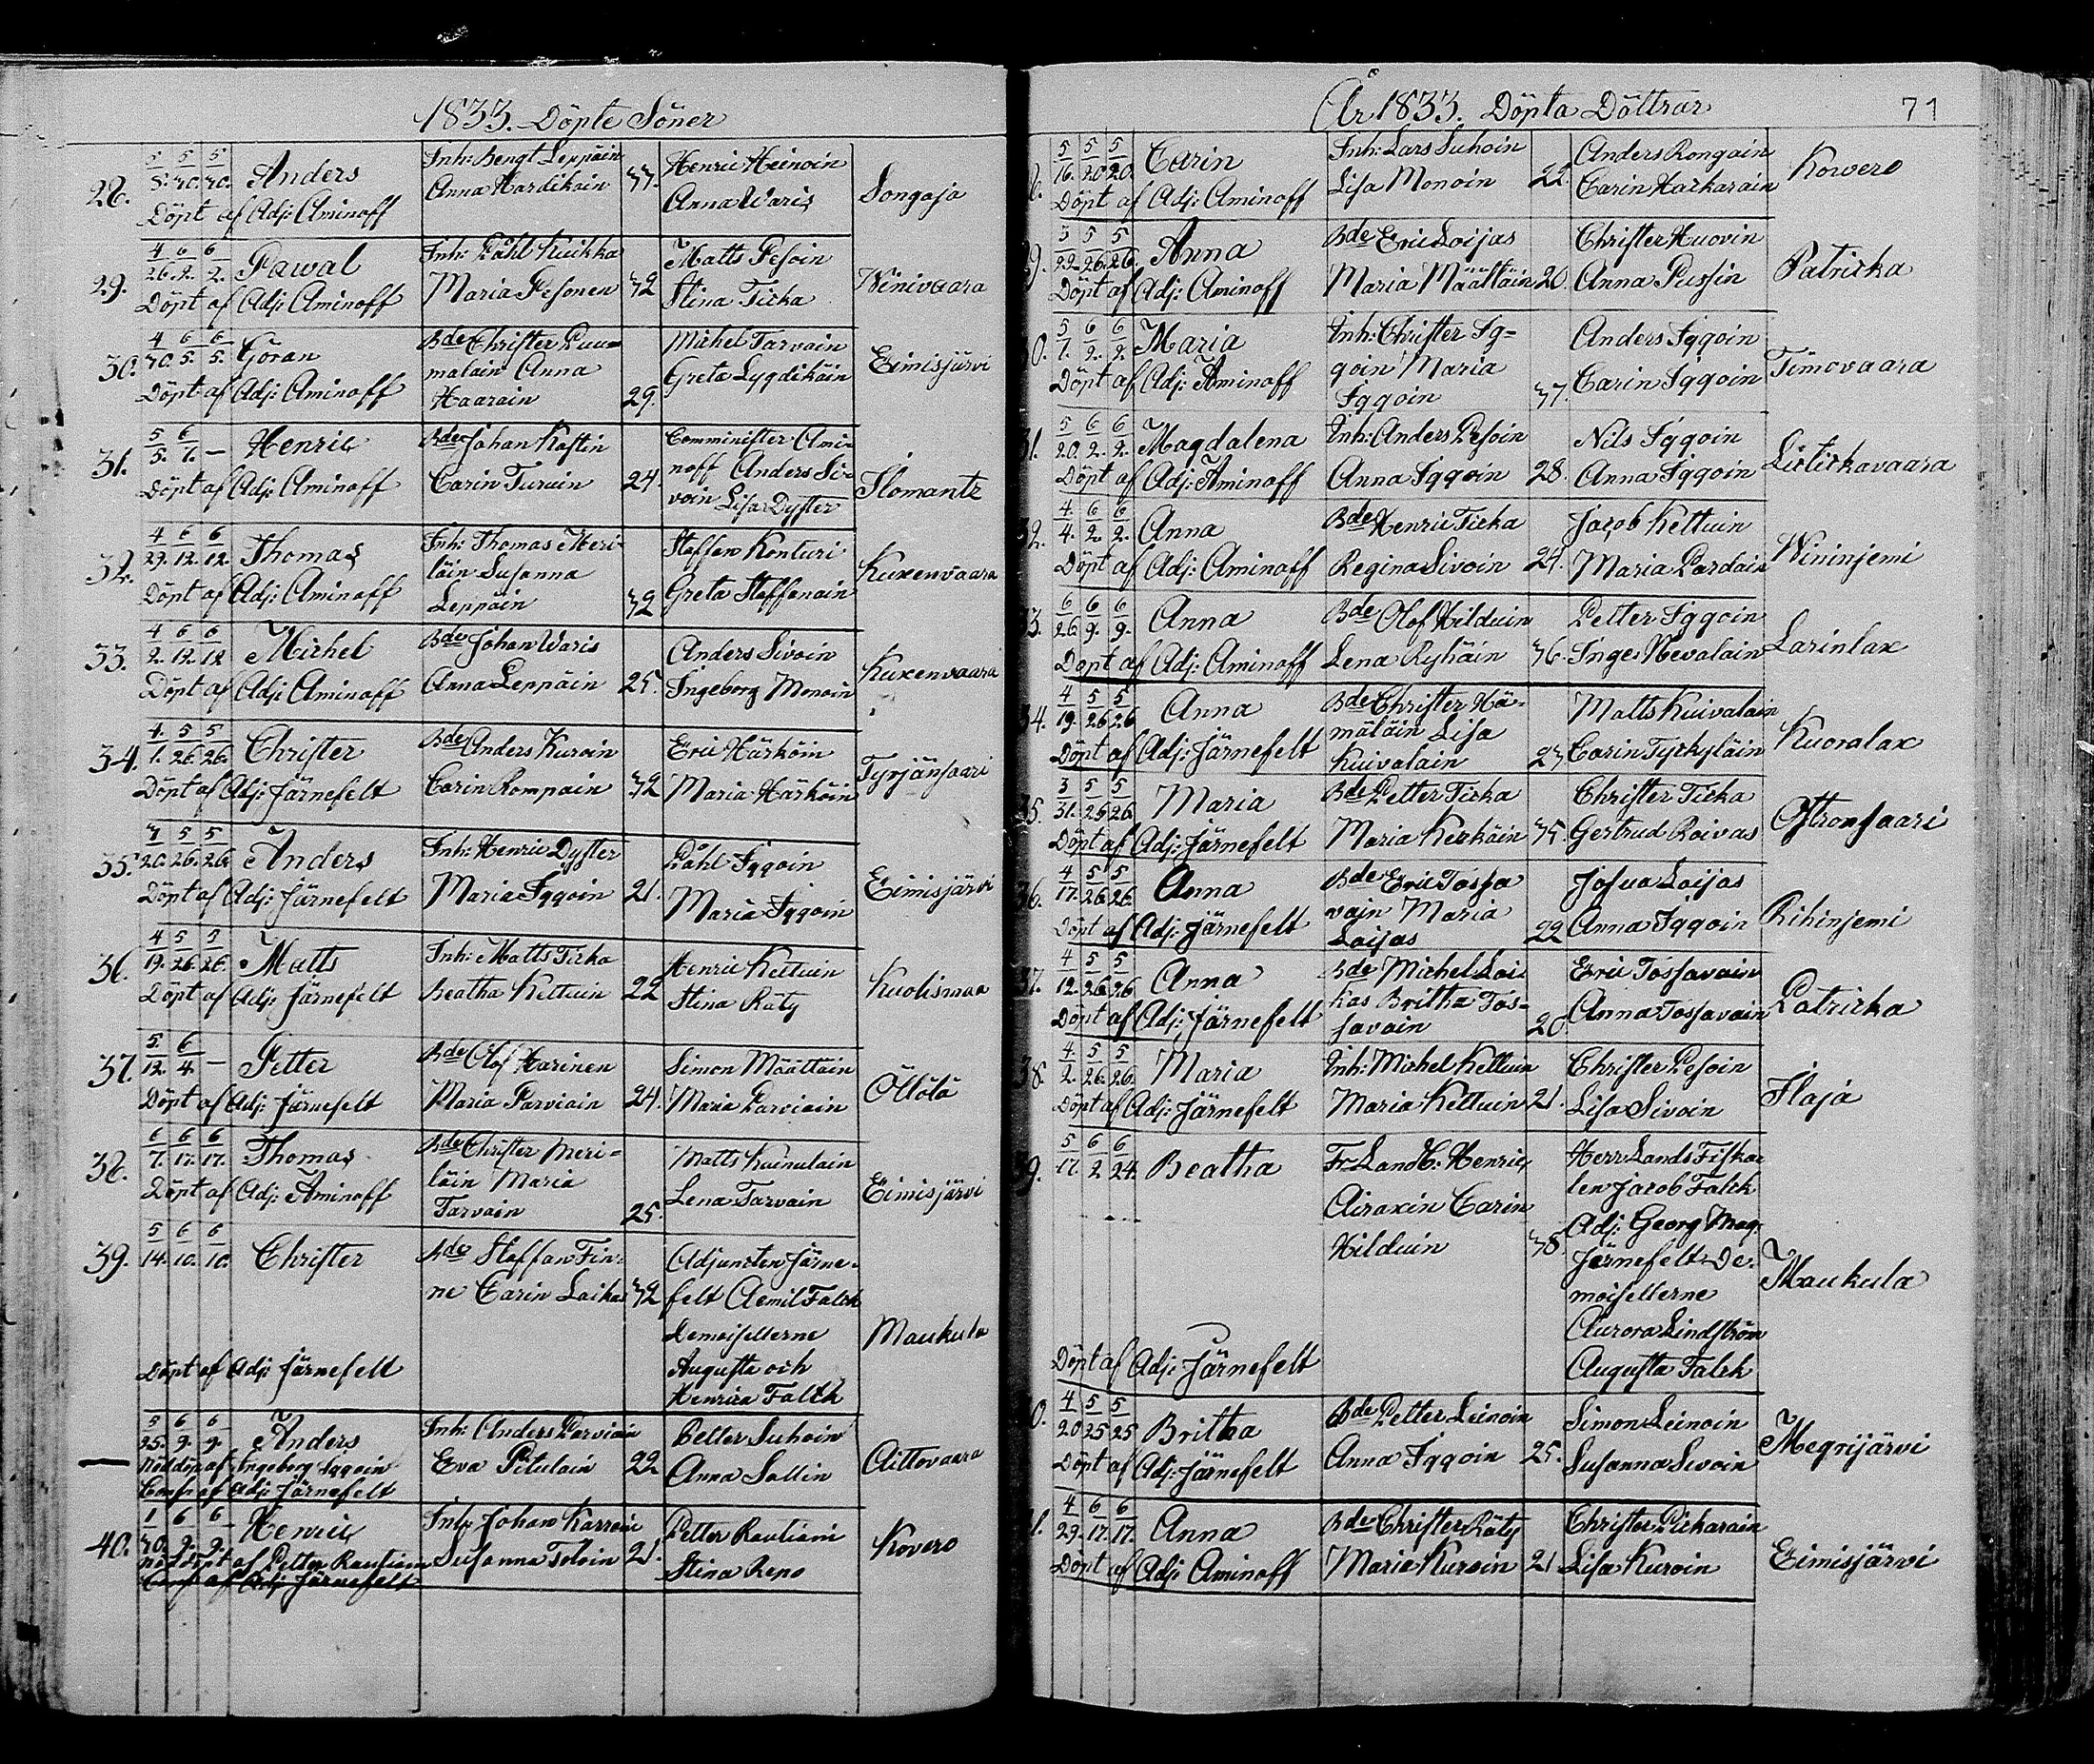 1833. Döpte Söner
28. 5/8. 5/30. 5/30. Anders Inh: Bengt Leppäin 37. Henric Heinoin Songaja
Anna Hardikain Anna Waris
Döpt af Adj: Aminoff
29. 4/26. 6/2. 6/2. Pawal Inh: Påhl Kuikka 32 Matts Pesoin Winivaara
Maria Pesonen Stina Ticka
Döpt af Adj: Aminoff
30. 4/30. 6/5. 6/5. Göran Bde Christer Puu= Michel Tarvain Eimisjärvi
malain Anna Greta Lygdikäin
Döpt af Adj: Aminoff Haarain 29.
31. 5/5. 6/1. — Henric Bde Johan Kostin Comminister Ami=
Carin Turuin 24. noff Anders Si= Ilomantz
Döpt af Adj: Aminoff voin Lisa Dyster
32. 4/29. 6/12. 6/12. Thomas Inh: Thomas Meri= Staffan Konturi Kuxenvaara
läin Susanna Greta Staffanain
Döpt af Adj: Aminoff Leppäin 32
33. 4/2. 6/12. 6/12 Michel Bde Johan Waris Anders Sivoin Kuxenvaara
Döpt af Adj: Aminoff Anna Leppäin 25. Ingeborg Monoin
34. 4/1. 5/26. 5/26. Christer Bde Anders Kuroin Eric Härköin Tyrjänsaari
Döpt af Adj: Järnefelt Carin Rompain 32 Maria Härköin
35. 3/20. 5/26. 5/26. Anders Inh: Henric Dyster Påhl Iggoin Eimisjärvi
Döpt af Adj: Järnefelt Maria Iggoin 21. Maria Iggoin
36. 4/19. 5/26. 5/26. Matts Inh: Matts Ticka Henric Kettuin Kuolismaa
Döpt af Adj: Järnefelt Beatha Kettuin 22 Stina Räty
37. 5/12. 6/4. — Petter Bde Olof Harinen Simon Määttäin Öllölä
Döpt af Adj: Järnefelt Maria Parviain 24. Maria Parviain
38. 6/7. 6/17. 6/17. Thomas Bde Christer Meri= Matts Kainulain Eimisjärvi
läin Maria Lena Tarvain
Döpt af Adj: Aminoff Tarvain 25.
39. 5/14. 6/10. 6/10. Christer Bde Staffan Fin= Adjuncten Järne=
ne Carin Laikas 32 felt Aemil Falck
Demoisellerne Maukula
Döpt af Adj: Järnefelt Augusta och
Henrica Falck
— 5/25. 6/9. 6/9. Anders Inh: Anders Parviain Petter Suhoin Aittovaara
Nöddöp: af Ingeborg Iggoin Eva Pitulain 22 Anna Sallin
Conf: af Adj: Järnefelt
40. 1/30. 6/9. 6/9. Henric Inh: Johan Karroin Petter Rautiain Kovero
Nöddöpt af Petter Rautiain Susanna Toloin 21. Stina Repo
Conf: af Adj: Järnefelt
År 1833. Döpta Döttrar 71
8. 5/16. 5/20. 5/20. Carin Inh: Lars Suhoin Anders Rongain Kowero
Döpt af Adj: Aminoff Lisa Monoin 22. Carin Harkarain
9. 3/22. 5/26. 5/26. Anna Bde Eric Loijas Christer Huovin Patricka
Döpt af Adj: Aminoff Maria Määttäin 20. Anna Pussin
0. 5/1. 6/2. 6/2. Maria Inh: Christer Ig= Anders Iggoin Timovaara
Döpt af Adj: Aminoff goin Maria Carin Iggoin
Iggoin 37.
1. 5/20. 6/2. 6/2. Magdalena Inh: Anders Pesoin Nils Iggoin Listickavaara
Döpt af Adj: Aminoff Anna Iggoin 28. Anna Iggoin
2. 4/4. 6/2. 6/2. Anna Bde Henric Ticka Jacob Kettuin Wininjemi
Döpt af Adj: Aminoff Regina Sivoin 24. Maria Pardain
3. 6/26. 6/9. 6/9. Anna Bde Olof Hilduin Petter Iggoin Larinlax
Döpt af Adj: Aminoff Lena Ryhäin 36. Inge: Nevalain
34. 4/19. 5/26. 5/26 Anna Bde Christer Hä= Matts Kuivalain Kuoralax
Döpt af Adj: Järnefelt mäläin Lisa Carin Tyrkyläin
Kuivalain 23
5. 3/31. 5/25 5/26. Maria Bde Petter Ticka Christer Ticka Ostronsaari
Döpt af Adj: Järnefelt Maria Keskäin 35. Gertrud Roivas
6. 4/17. 5/26. 5/26. Anna Bde Eric Tossa= Josua Loijas Rihinjemi
vain Maria Anna Iggoin
Döpt af Adj: Järnefelt Loijas 22
7. 4/12. 5/26. 5/26 Anna Bde Michel Lai= Eric Tossavain Patricka
kas Britha Tos= Anna Tossavain
Döpt af Adj: Järnefelt savain 20
8. 4/2. 5/26. 5/26. Maria Inh: Michel Kettuin Christer Pesoin Ilaja
Döpt af Adj: Järnefelt Maria Kettuin 21. Lisa Sivoin
9. 5/17. 6/2 6/24. Beatha Fr. Landb: Henric Herr Lands Fiska=
len Jacob Falck
Airaxin Carin Adj: Georg Mag:
Hilduin 38. Järnefelt De= Maukula
moisellerne
Aurora Lindström
Döpt af Adj: Järnefelt Augusta Falck
0. 4/20 5/25 5/25 Britha Bde Petter Leinoin Simon Leinoin Megrijärvi
Döpt af Adj: Järnefelt Anna Iggoin 25. Susanna Sivoin
1. 4/29. 6/17. 6/17. Anna Bde Christer Räty Christer Pickarain Eimisjärvi
Döpt af Adj: Aminoff Maria Kuroin 21 Lisa Kuroin